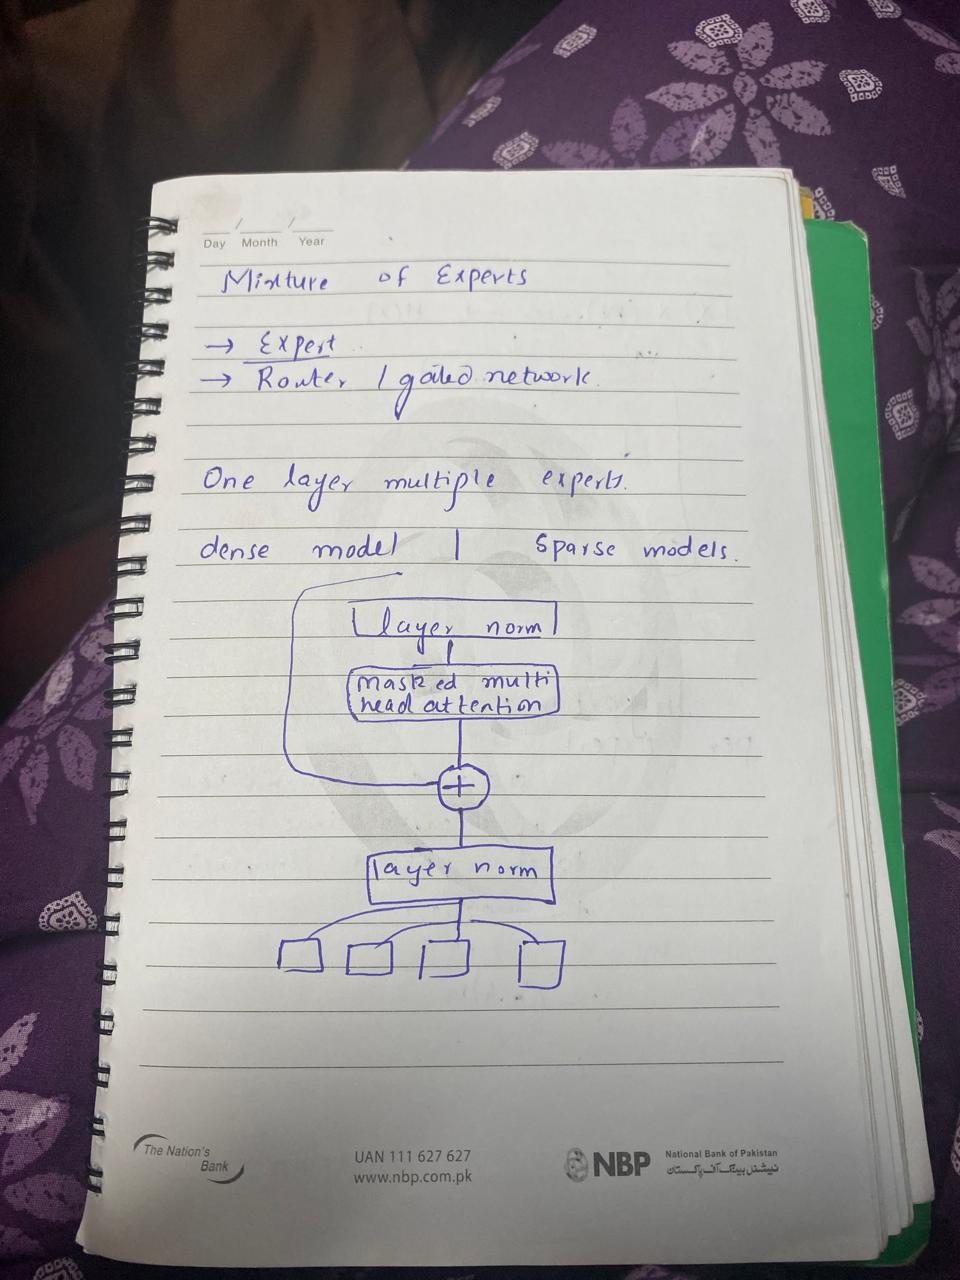 Day / Month / Year
Mixture of Experts
→ Expert
→ Router / gated network.
One layer multiple experts.
dense model | sparse models.
layer norm
masked multi
head attention
+
layer norm
The Nation's
Bank
UAN 111 627 627
www.nbp.com.pk
NBP
National Bank of Pakistan
نیشنل بینک آف پاکستان